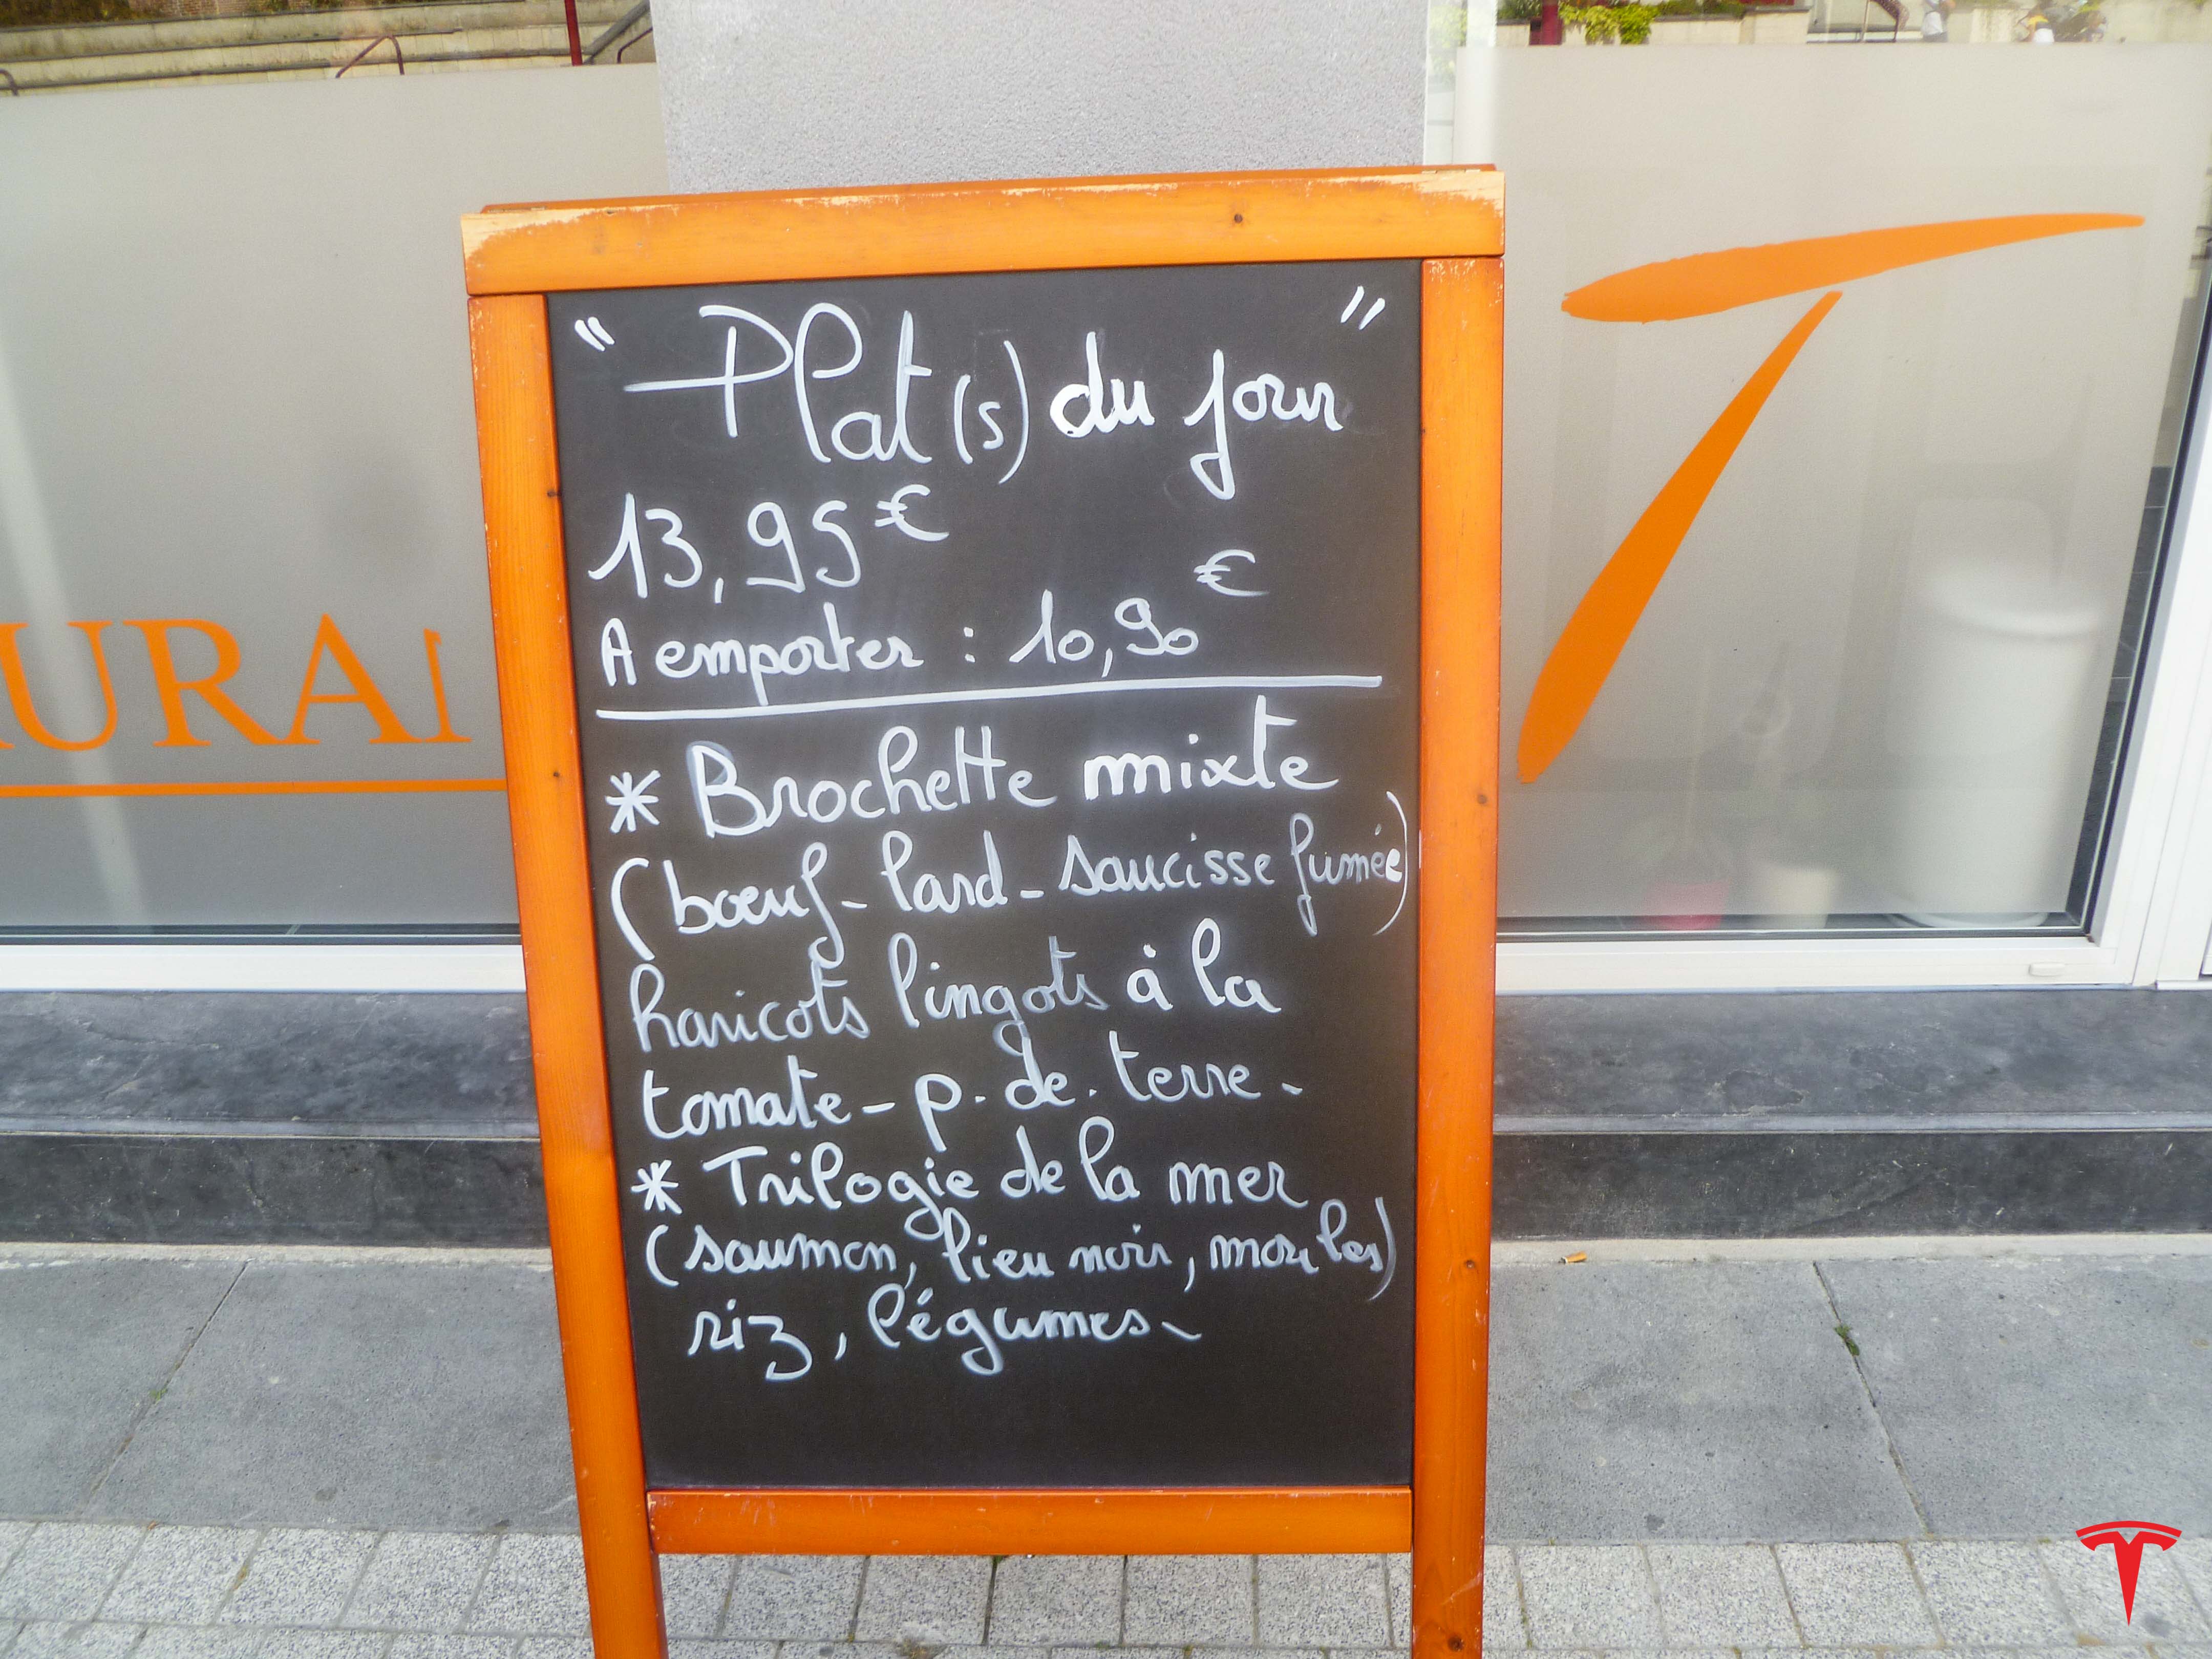 " Plat(s) du jour "
13,95 €
A emporter : 10,90 €
* Brochette mixte
(bœuf - lard - saucisse fumée)
haricots lingots à la
tomate - p. de. terre -
* Trilogie de la mer
(saumon, lieu noir, moules)
riz, légumes -
URA
T